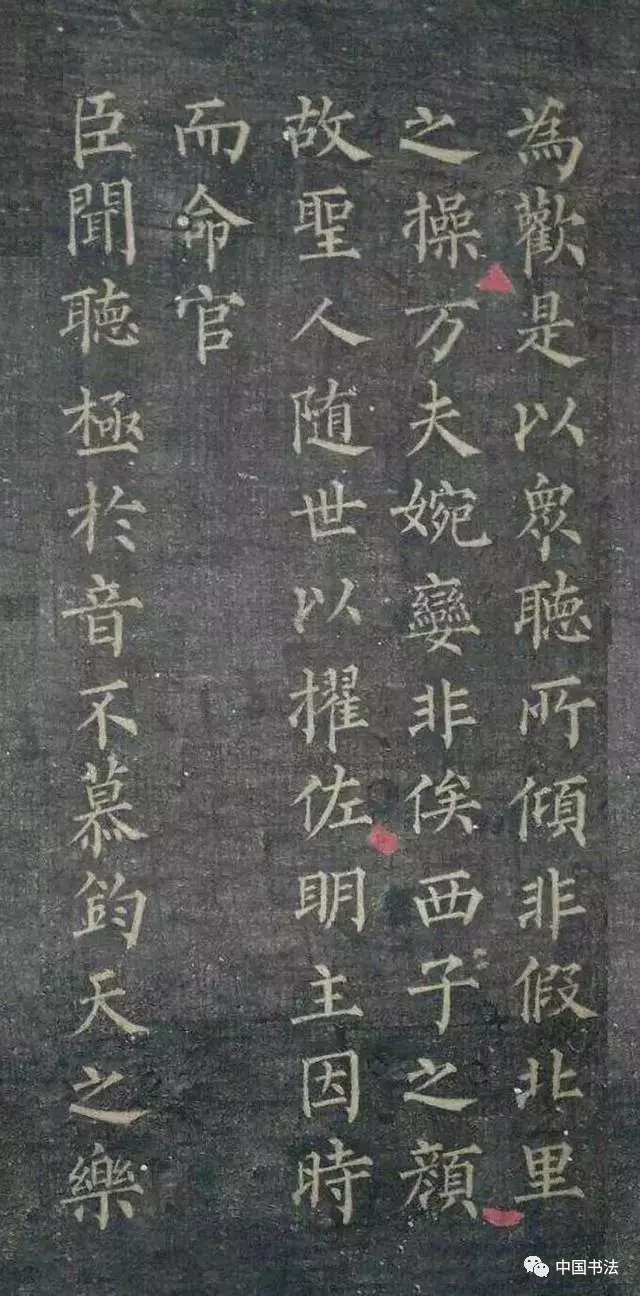 為歡是以衆聽所傾非假北里
之操万夫婉孌非俟西子之顔
故聖人随世以擢佐明主因時
而命官
臣聞聽極於音不慕鈞天之樂
中国书法